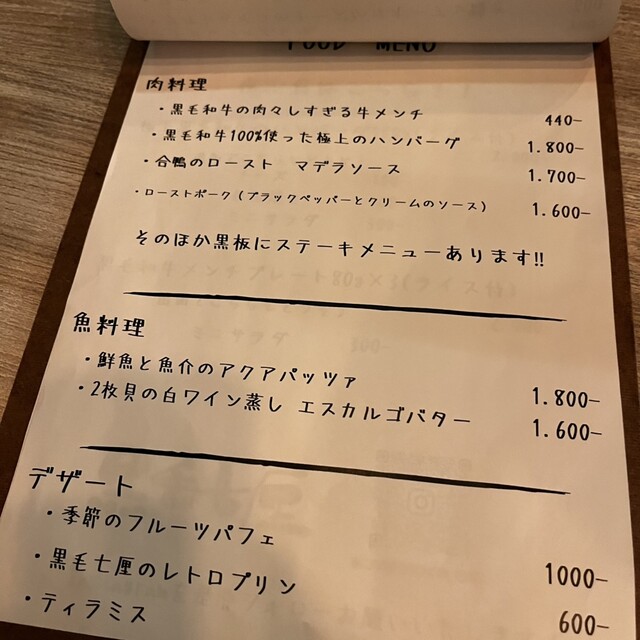 FOOD MENU
肉料理
・黒毛和牛の肉々しすぎる牛メンチ 440-
・黒毛和牛100%使った極上のハンバーグ 1.800-
・合鴨のロースト マデラソース 1.700-
・ローストポーク（ブラックペッパーとクリームのソース） 1.600-
そのほか黒板にステーキメニューあります!!
魚料理
・鮮魚と魚介のアクアパッツァ 1.800-
・2枚貝の白ワイン蒸し エスカルゴバター 1.600-
デザート
・季節のフルーツパフェ 1000-
・黒毛七厘のレトロプリン 600-
・ティラミス